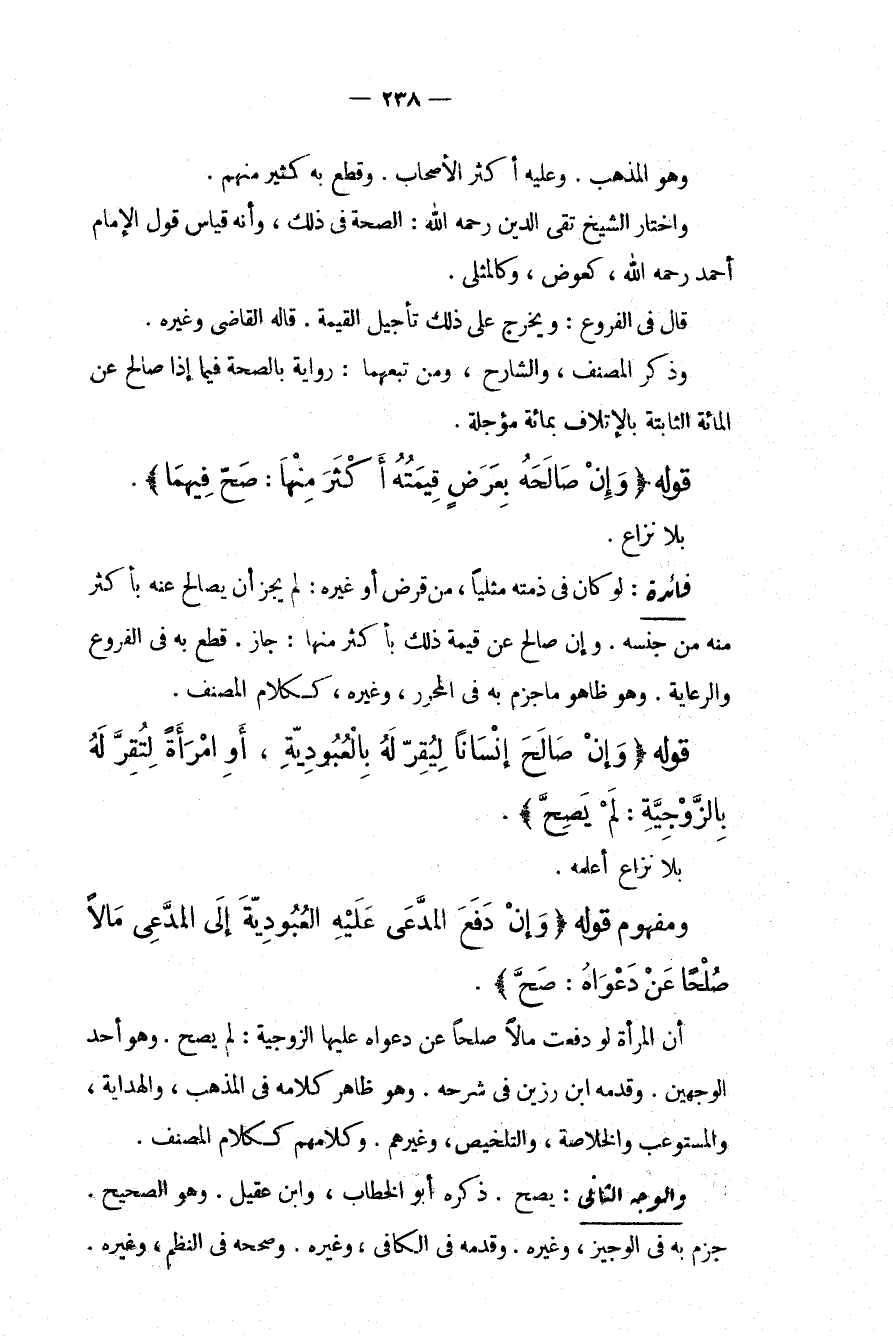 — ٢٣٨ —
وهو المذهب . وعليه أكثر الأصحاب . وقطع به كثير منهم .
واختار الشيخ تقى الدين رحمه الله : الصحة فى ذلك ، وأنه قياس قول الإمام
أحمد رحمه الله ، كعوض ، وكالمثلى .
قال فى الفروع : ويخرج على ذلك تأجيل القيمة . قاله القاضى وغيره .
وذكر المصنف ، والشارح ، ومن تبعهما : رواية بالصحة فيما إذا صالح عن
المائة الثابتة بالإتلاف بمائة مؤجلة .
قوله ﴿ وَإِنْ صَالَحَهُ بِعَرَضٍ قِيمَتُهُ أَكْثَرَ مِنْهَا : صَحّ فِيهِمَا ﴾ .
بلا نزاع .
فائدة : لو كان فى ذمته مثلياً ، من قرض أو غيره : لم يجز أن يصالح عنه بأكثر
منه من جنسه . وإن صالح عن قيمة ذلك بأكثر منها : جاز . قطع به فى الفروع
والرعاية . وهو ظاهو ماجزم به فى المحرر ، وغيره ، ككلام المصنف .
قوله ﴿ وَإِنْ صَالَحَ إِنْسَانًا لِيُقِرّ لَهُ بِالْعُبُودِيّةِ ، أَوِ امْرَأَةً لِتُقِرَّ لَهُ
بِالزَّوْجِيَّةِ : لَمْ يَصِحَّ ﴾ .
بلا نزاع أعلمه .
ومفهوم قوله ﴿ وَإِنْ دَفَعَ المدَّعَى عَلَيْهِ العُبُودِيّةَ إِلَى المدَّعِى مَالاً
صُلْحًا عَنْ دَعْوَاهُ : صَحَّ ﴾ .
أن المرأة لو دفعت مالاً صلحاً عن دعواه عليها الزوجية : لم يصح . وهو أحد
الوجهين . وقدمه ابن رزين فى شرحه . وهو ظاهر كلامه فى المذهب ، والهداية ،
والمستوعب والخلاصة ، والتلخيص، وغيرهم . وكلامهم ككلام المصنف .
والوجه الثانى : يصح . ذكره أبو الخطاب ، وابن عقيل . وهو الصحيح .
جزم به فى الوجيز ، وغيره . وقدمه فى الكافى ، وغيره . وصححه فى النظم ، وغيره .